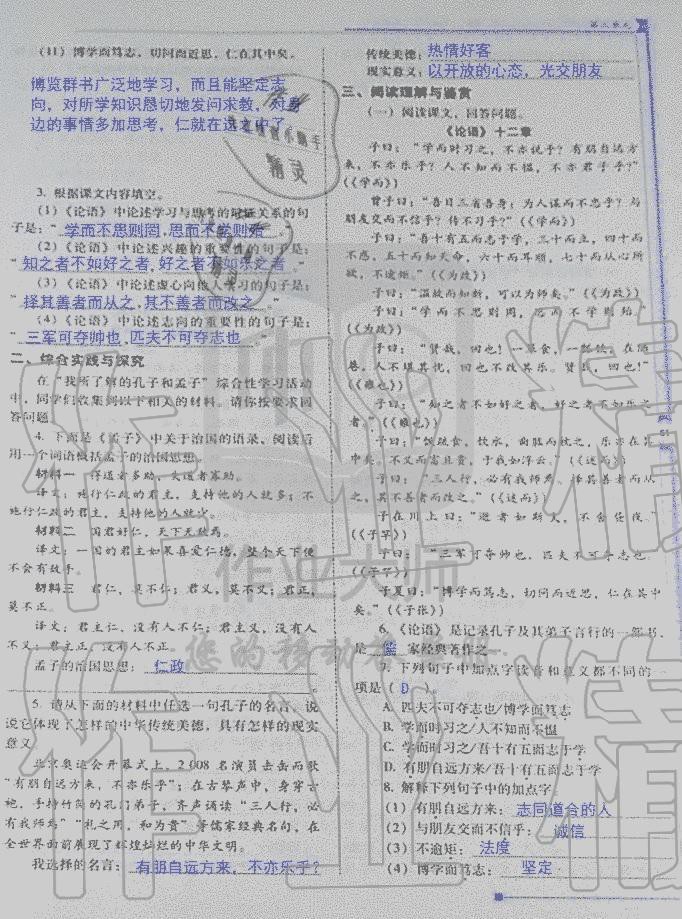 第三单元
(11) 博学而笃志，切问而近思，仁在其中矣。
博览群书广泛地学习，而且能坚定志
向，对所学知识恳切地发问求教，对身
边的事情多加思考，仁就在这之中了。
3. 根据课文内容填空。
(1)《论语》中论述学习与思考的辩证关系的句
子是：“学而不思则罔，思而不学则殆
(2)《论语》中论述兴趣的重要性的句子是：
“知之者不如好之者，好之者不如乐之者
(3)《论语》中论述虚心向他人学习的句子是：
“择其善者而从之，其不善者而改之”
(4)《论语》中论述志向的重要性的句子是：
“三军可夺帅也，匹夫不可夺志也
二、综合实践与探究
在“我所了解的孔子和孟子”综合性学习活动
中，同学们收集到以下相关的材料。请你按要求回
答问题
4. 下面是《孟子》中关于治国的语录，阅读后
用一个词语概括孟子的治国思想。
材料一 得道者多助，失道者寡助。
译文：施行仁政的君主，支持他的人就多；不
施行仁政的君主，支持他的人就少。
材料二 国君好仁，天下无敌焉。
译文：一国的君主如果喜爱仁德，整个天下便
不会有敌手。
材料三 君仁，莫不仁；君义，莫不义；君正，
莫不正。
译文：君主仁，没有人不仁；君主义，没有人
不义；君主正，没有人不正。
孟子的治国思想：仁政
5. 请从下面的材料中任选一句孔子的名言，说
说它体现了怎样的中华传统美德，具有怎样的现实
意义
北京奥运会开幕式上，2 008 名演员击缶而歌
“有朋自远方来，不亦乐乎”；在古琴声中，身穿古
袍、手持竹简的孔门弟子，齐声诵读“三人行，必
有我师焉”“礼之用，和为贵”等儒家经典名句，在
全世界面前展现了辉煌灿烂的中华文明。
我选择的名言：有朋自远方来，不亦乐乎？
传统美德：热情好客
现实意义：以开放的心态，光交朋友
三、阅读理解与鉴赏
(一) 阅读课文，回答问题。
《论语》十二章
子曰：“学而时习之，不亦说乎？有朋自远方
来，不亦乐乎？人不知而不愠，不亦君子乎？”
(《学而》)
曾子曰：“吾日三省吾身：为人谋而不忠乎？与
朋友交而不信乎？传不习乎？”(《学而》)
子曰：“吾十有五而志于学，三十而立，四十而
不惑，五十而知天命，六十而耳顺，七十而从心所
欲，不逾矩。”(《为政》)
子曰：“温故而知新，可以为师矣。”(《为政》)
子曰：“学而不思则罔，思而不学则殆”
(《为政》)
子曰：“贤哉，回也！一箪食，一瓢饮，在陋
巷，人不堪其忧，回也不改其乐。贤哉，回也！”
(《雍也》)
子曰：“知之者不如好之者，好之者不如乐之
者。”(《雍也》)
子曰：“饭疏食，饮水，曲肱而枕之，乐亦在其
中矣。不义而富且贵，于我如浮云。”(《述而》)
子曰：“三人行，必有我师焉。择其善者而从
之，其不善者而改之。”(《述而》)
子在川上曰：“逝者如斯夫，不舍昼夜。”
(《子罕》)
子曰：“三军可夺帅也，匹夫不可夺志也
(《子罕》)
子夏曰：“博学而笃志，切问而近思，仁在其中
矣。”(《子张》)
6.《论语》是记录孔子及其弟子言行的一部书，
是 儒 家经典著作之一
7. 下列句子中加点字读音和意义都不同的一
项是（D）。
A. 匹夫不可夺志也/博学而笃志
B. 学而时习之/人不知而不愠
C. 学而时习之/吾十有五而志于学
D. 有朋自远方来/吾十有五而志于学
8. 解释下列句子中的加点字。
(1) 有朋自远方来：志同道合的人
(2) 与朋友交而不信乎：诚信
(3) 不逾矩：法度
(4) 博学而笃志：坚定
51
作业精灵
作业大师
您的移动